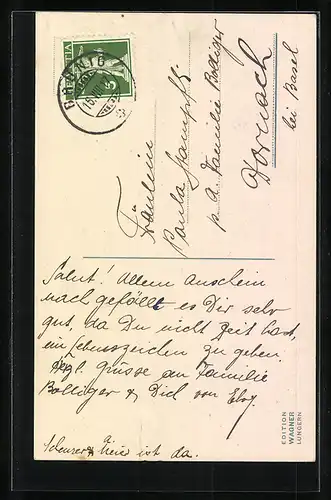 BRÜNIG
HELVETIA
5
Fräulein
Paula Stampfli
p. A. Familie Bolliger
Dornach
bei Basel
Salut! Allem Anschein
nach gefällt es Dir sehr
gut, da Du nicht Zeit hast,
ein Lebenszeichen zu geben.
Vergl. Grüsse an Familie
Bolliger & Dich von Elsy.
ist da.
EDITION
WAGNER
LUNGERN